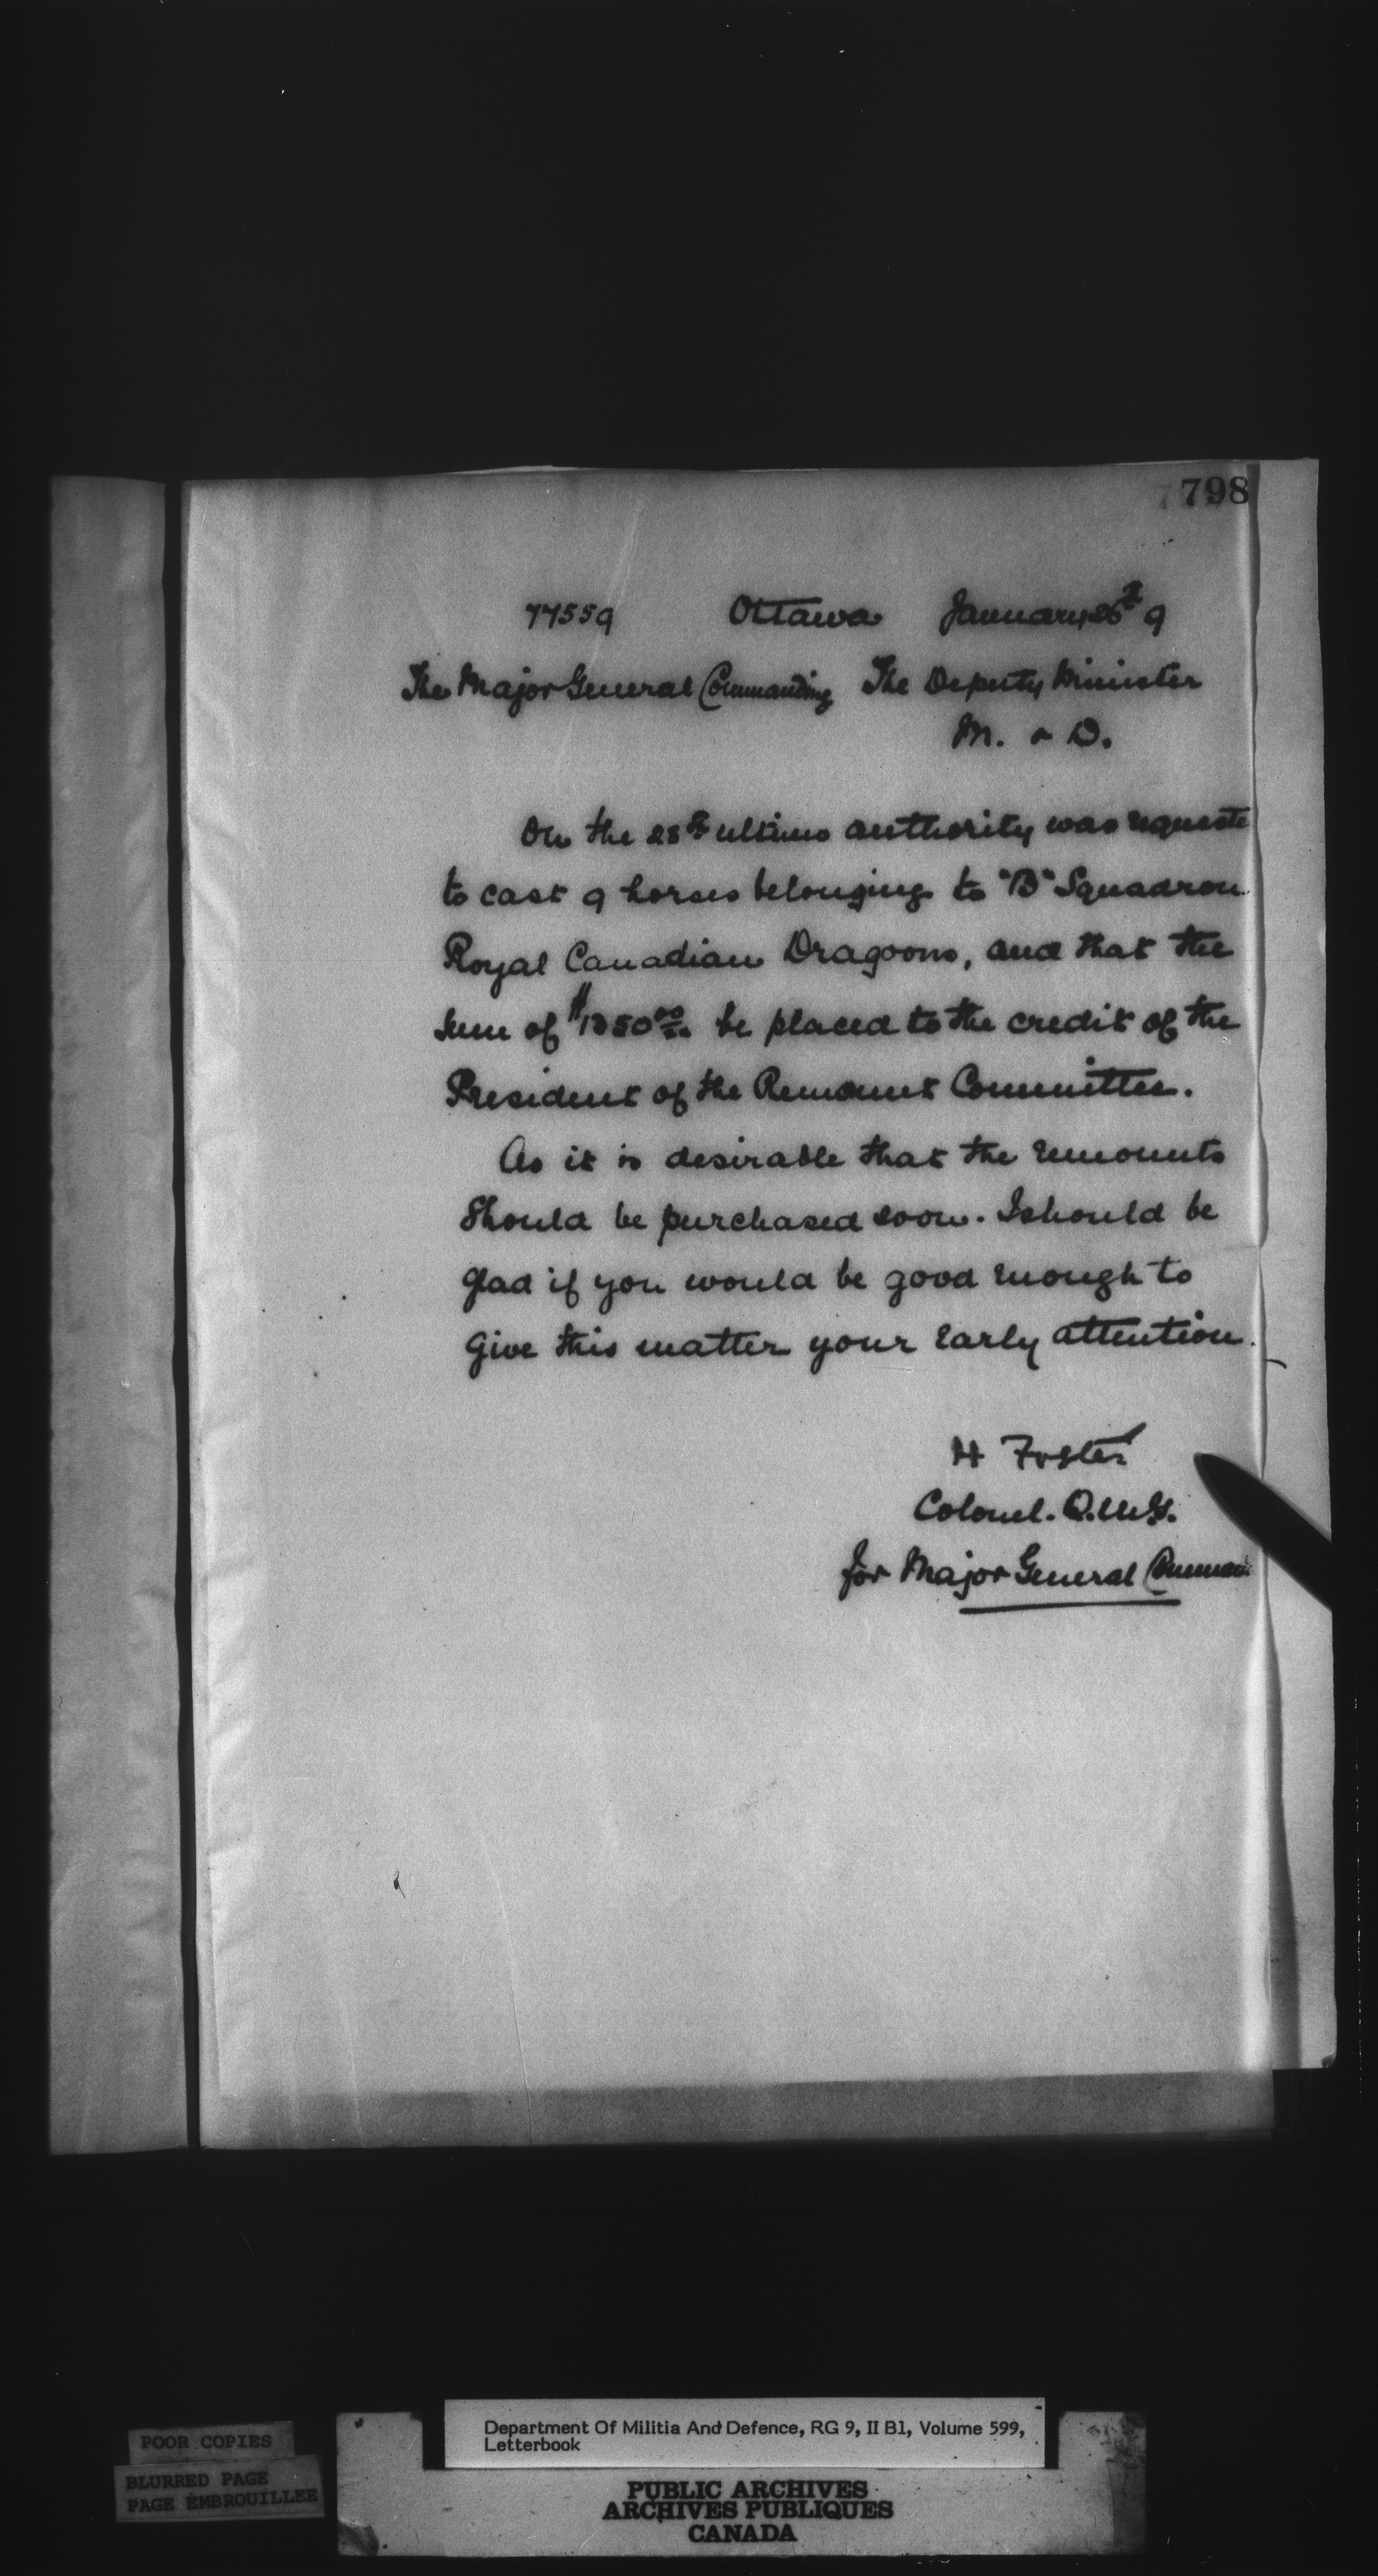 798
77559 Ottawa January 25th 9
The Major General Commanding The Deputy Minister
M. & D.
On the 28th ultimo authority was requeste
to cast 9 horses belonging to "B" Squadron
Royal Canadian Dragoons, and that the
sum of $1350.00 be placed to the credit of the
President of the Remount Committee.
As it is desirable that the remounts
should be purchased soon. I should be
glad if you would be good enough to
give this matter your early attention.
H Foster
Colonel. Q.M.G.
for Major General Comman
POOR COPIES
BLURRED PAGE
PAGE EMBROUILLEE
Department Of Militia And Defence, RG 9, II B1, Volume 599,
Letterbook
PUBLIC ARCHIVES
ARCHIVES PUBLIQUES
CANADA